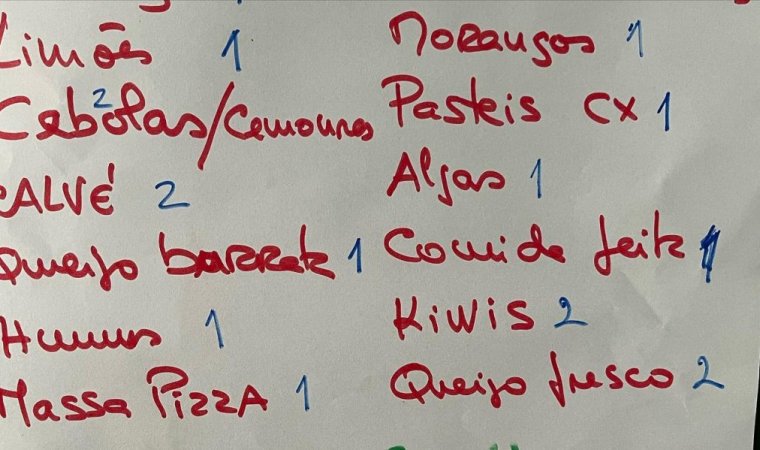 Limões 1
Cebolas/Cenouras 2
CALVÉ 2
Queijo barrar 1
Humus 1
Massa PizzA 1
Morangos 1
Pasteis cx 1
Algas 1
Comida feita 1
KiWiS 2
Queijo fresco 2